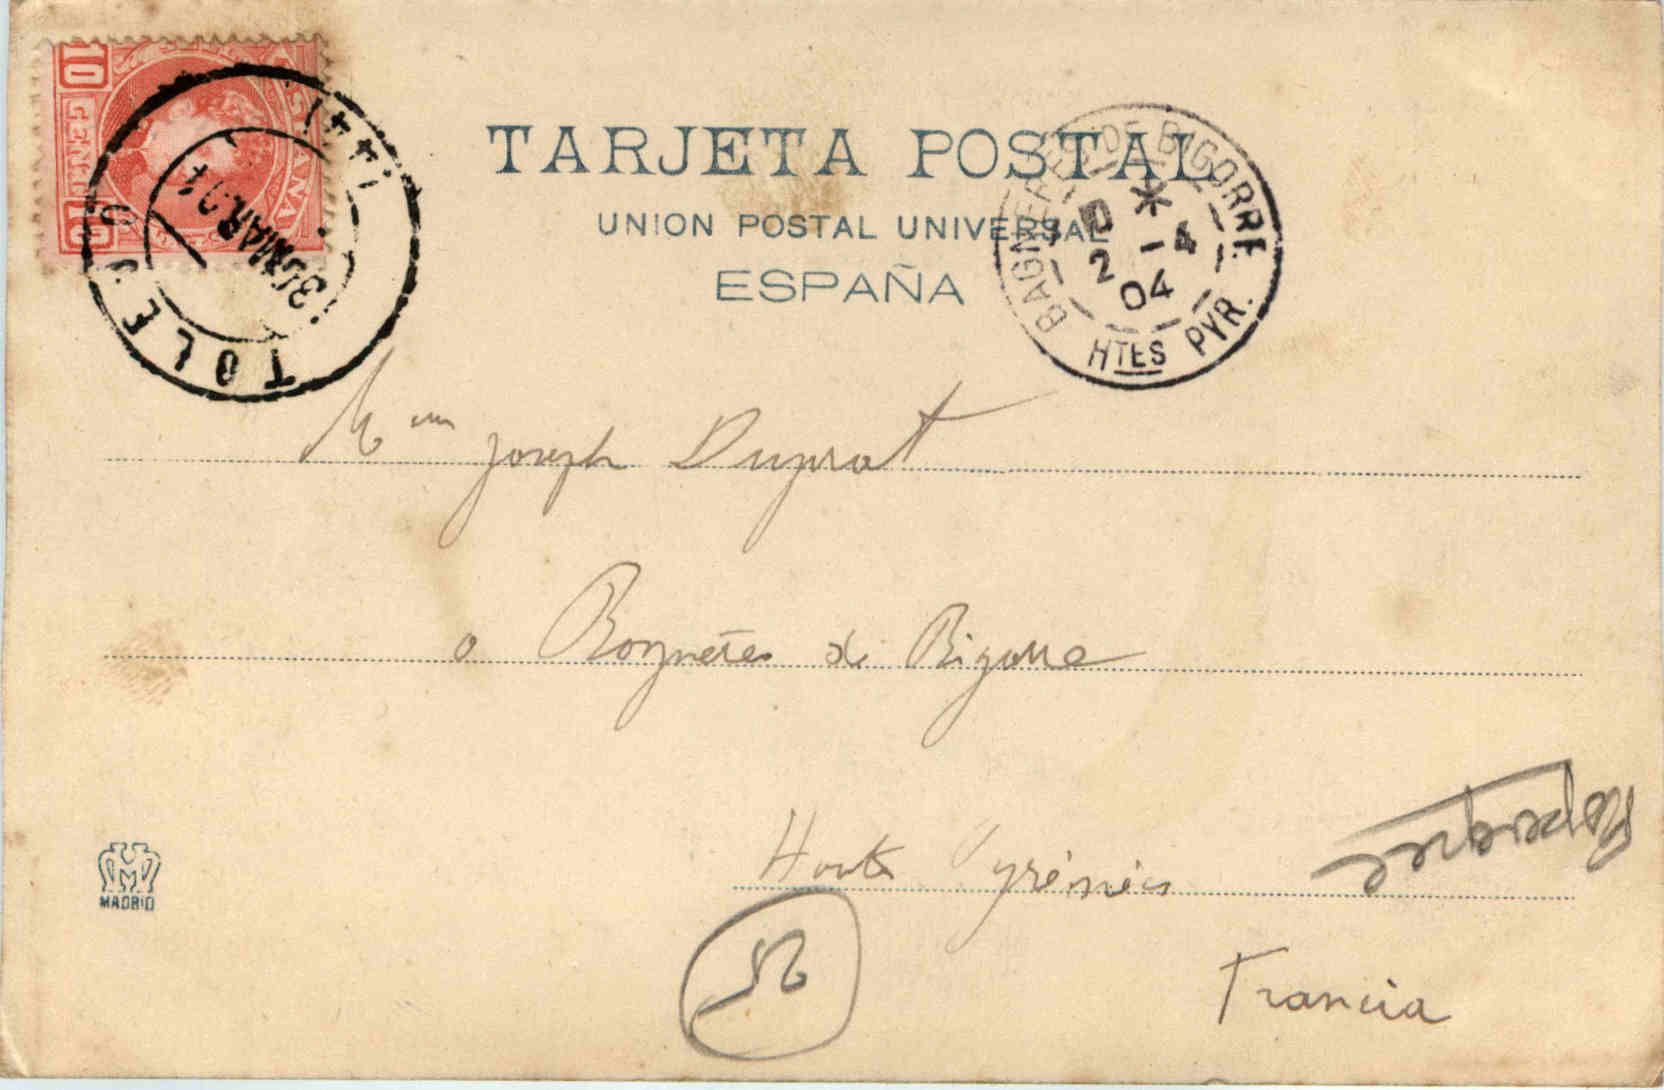 10
CENT.
10
TOLEDO
30 MAR.04
TARJETA POSTAL
UNION POSTAL UNIVERSAL
ESPAÑA
BAGNERES DE BIGORRE
2 - 4
04
HTES PYR.
Mme Joseph Duprat
a Bagnères de Bigorre
Hautes Pyrénées
Francia
MADRID